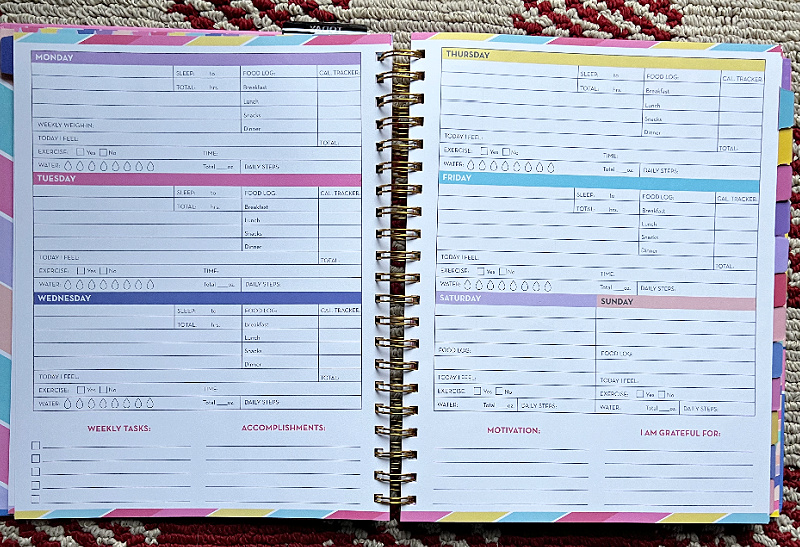 MONDAY
SLEEP: to FOOD LOG: CAL. TRACKER:
TOTAL: hrs. Breakfast
Lunch
Snacks
WEEKLY WEIGH IN: Dinner
TODAY I FEEL: TOTAL:
EXERCISE: Yes No TIME:
WATER: Total ___oz. DAILY STEPS:
TUESDAY
SLEEP: to FOOD LOG: CAL. TRACKER:
TOTAL: hrs. Breakfast
Lunch
Snacks
Dinner
TODAY I FEEL: TOTAL:
EXERCISE: Yes No TIME:
WATER: Total ___oz. DAILY STEPS:
WEDNESDAY
SLEEP: to FOOD LOG: CAL. TRACKER:
TOTAL: hrs. Breakfast
Lunch
Snacks
Dinner
TODAY I FEEL: TOTAL:
EXERCISE: Yes No TIME:
WATER: Total ___oz. DAILY STEPS:
WEEKLY TASKS: ACCOMPLISHMENTS:
THURSDAY
SLEEP: to FOOD LOG: CAL. TRACKER:
TOTAL: hrs. Breakfast
Lunch
Snacks
Dinner
TODAY I FEEL: TOTAL:
EXERCISE: Yes No TIME:
WATER: Total ___oz. DAILY STEPS:
FRIDAY
SLEEP: to FOOD LOG: CAL. TRACKER:
TOTAL: hrs. Breakfast
Lunch
Snacks
Dinner
TODAY I FEEL: TOTAL:
EXERCISE: Yes No TIME:
WATER: Total ___oz. DAILY STEPS:
SATURDAY SUNDAY
FOOD LOG: FOOD LOG:
TODAY I FEEL: TODAY I FEEL:
EXERCISE: Yes No EXERCISE: Yes No
WATER: Total ___oz. DAILY STEPS: WATER: Total ___oz. DAILY STEPS:
MOTIVATION: I AM GRATEFUL FOR: